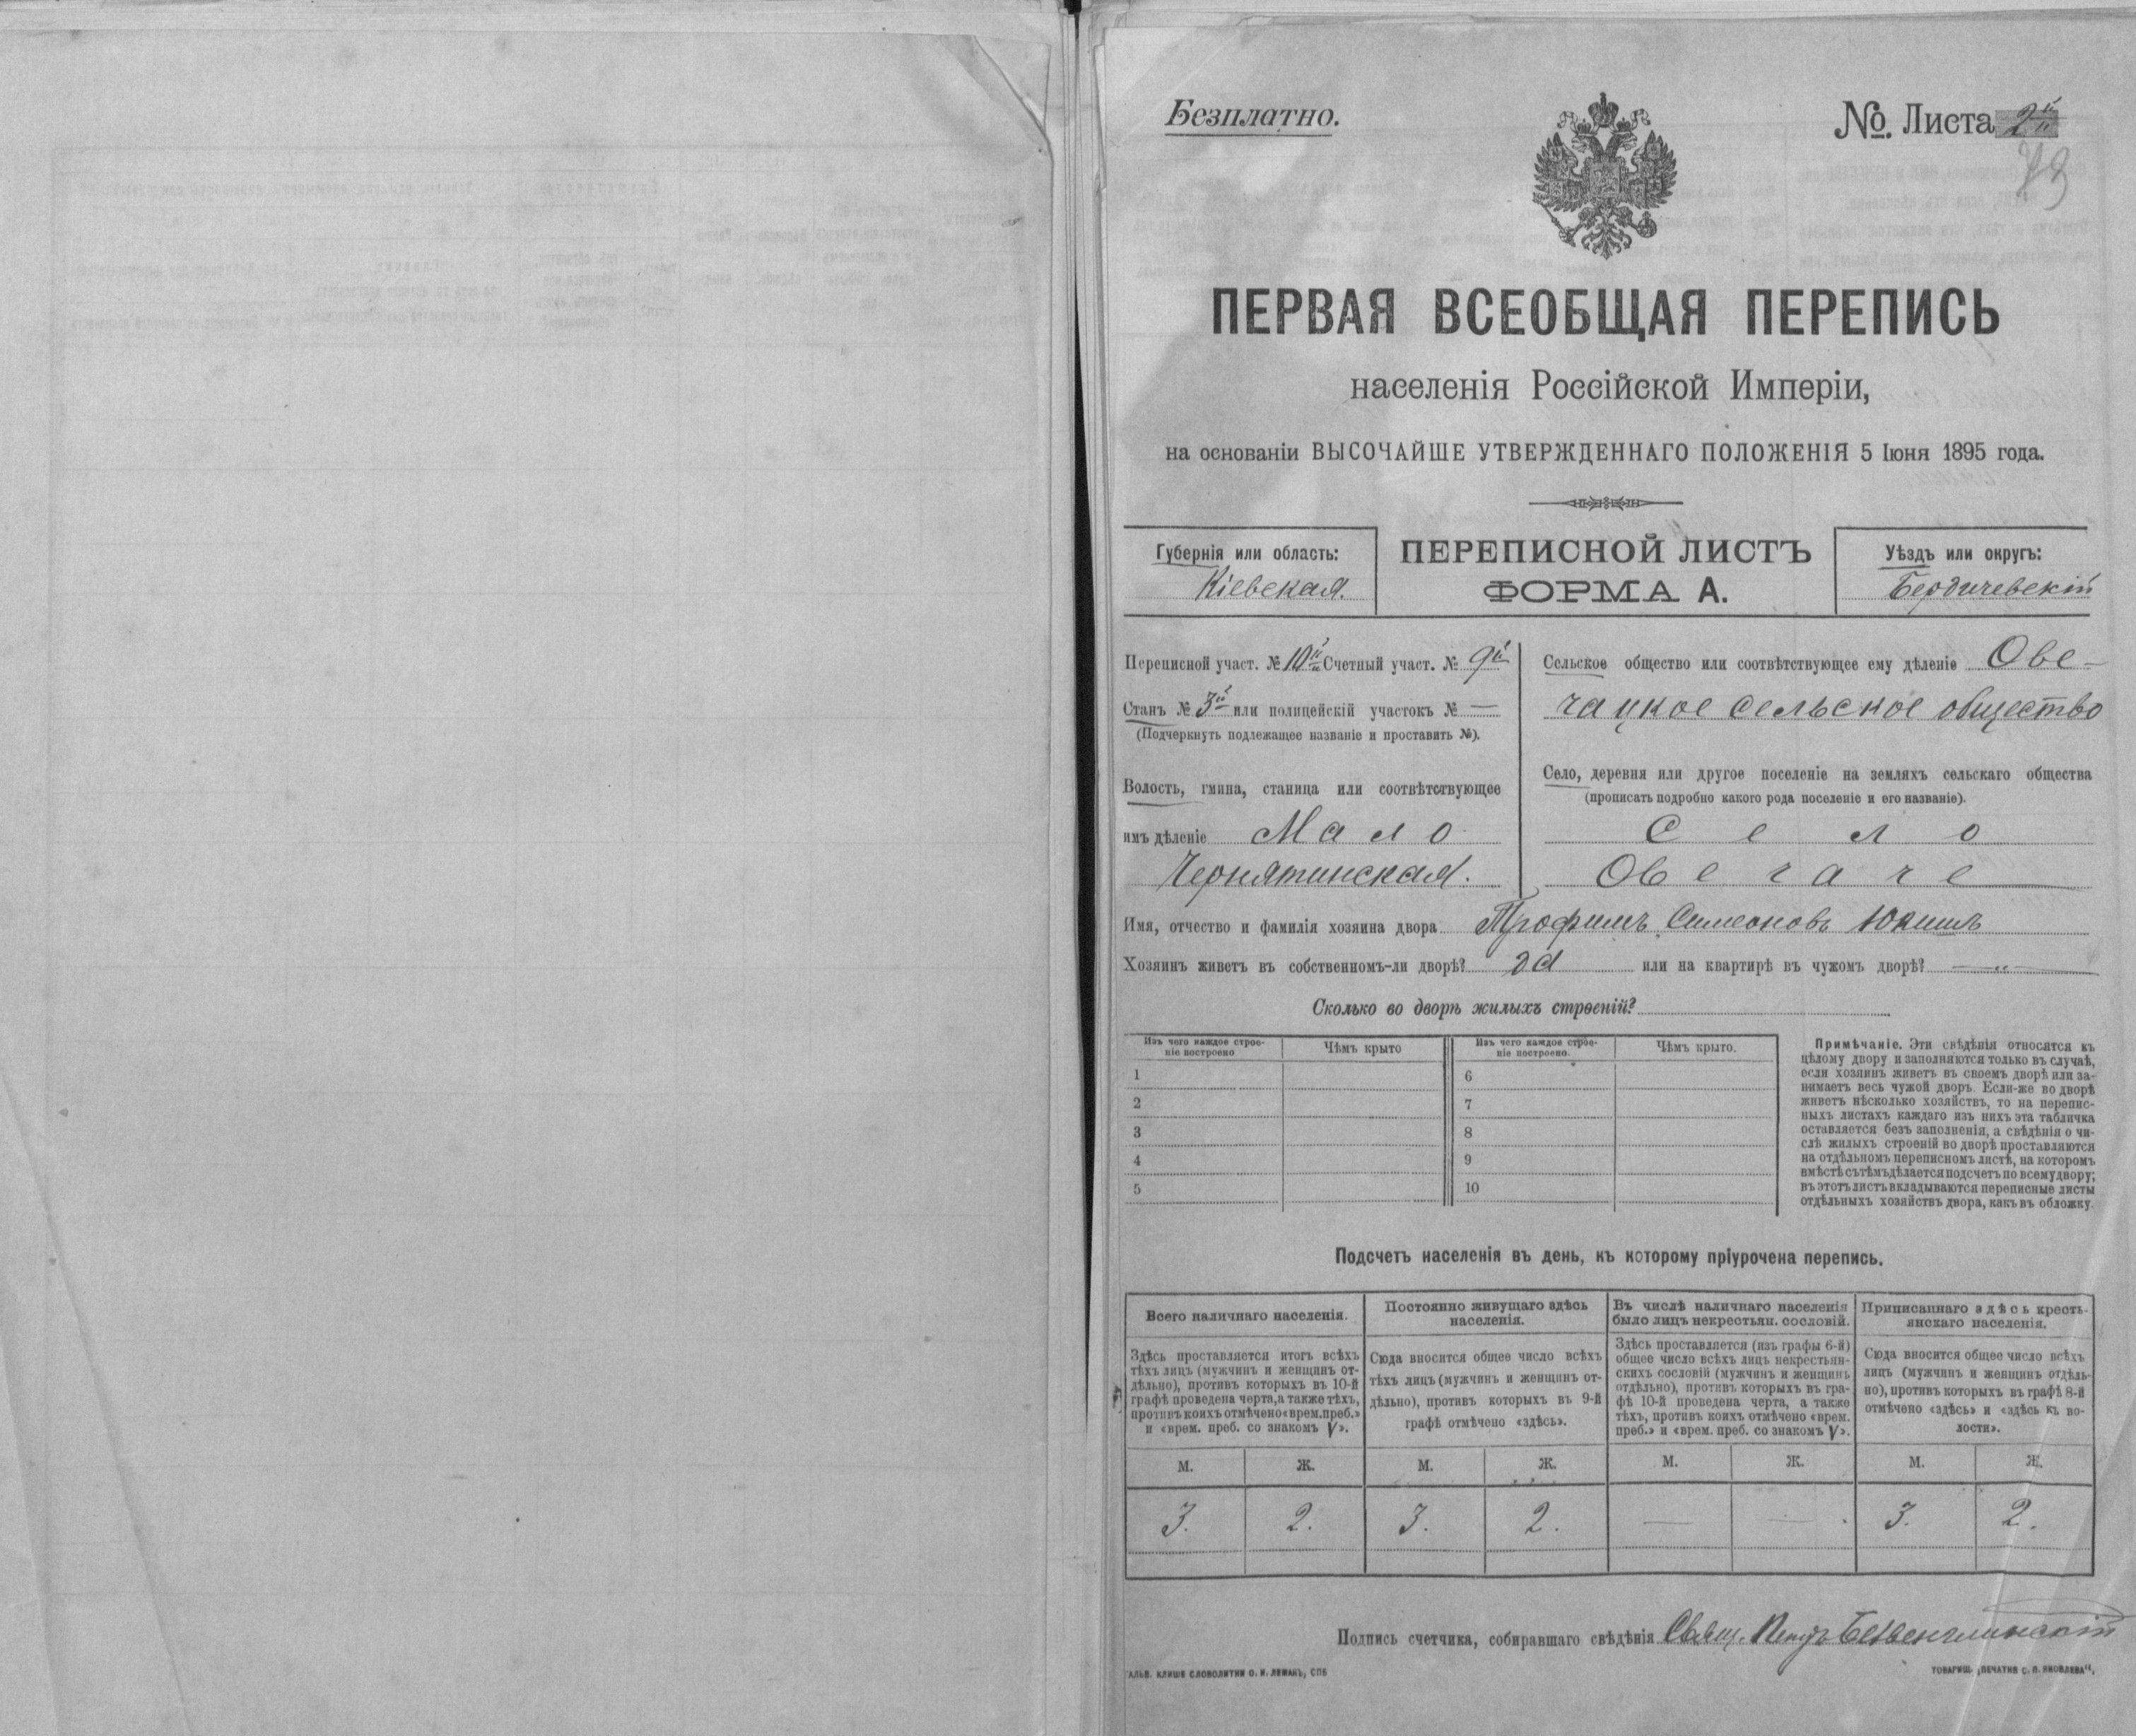 Безплатно.
№. Листа 2й
ПЕРВАЯ ВСЕОБЩАЯ ПЕРЕПИСЬ
населенія Россійской Имперіи,
на основаніи ВЫСОЧАЙШЕ УТВЕРЖДЕННАГО ПОЛОЖЕНІЯ 5 Іюня 1895 года.
Губернія или область:
Кіевская.
ПЕРЕПИСНОЙ ЛИСТЪ
ФОРМА А.
Уѣздъ или округъ:
Бердичевскій
Переписной участ. № 10й Счетный участ. № 9й
Станъ № 3й или полицейскій участокъ № —
(Подчеркнуть подлежащее названіе и проставить №).
Волость, гмина, станица или соотвѣтствующее
имъ дѣленіе Мало
Чернятинская.
Сельское общество или соотвѣтствующее ему дѣленіе Ове-
чацкое сельское общество
Село, деревня или другое поселеніе на земляхъ сельскаго общества
(прописать подробно какого рода поселеніе и его названіе).
Село
Овечаче
Имя, отчество и фамилія хозяина двора Трофимъ Симеоновъ
Хозяинъ живетъ въ собственномъ-ли дворѣ? да или на квартирѣ въ чужомъ дворѣ? — „ —
Сколько во дворѣ жилыхъ строеній?
Изъ чего каждое строе-
ніе построено
Чѣмъ крыто
Изъ чего каждое строе-
ніе построено.
Чѣмъ крыто.
1 6
2 7
3 8
4 9
5 10
Примѣчаніе. Эти свѣдѣнія относятся къ
цѣлому двору и заполняются только въ случаѣ,
если хозяинъ живетъ въ своемъ дворѣ или за-
нимаетъ весь чужой дворъ. Если-же во дворѣ
живетъ нѣсколько хозяйствъ, то на перепис-
ныхъ листахъ каждаго изъ нихъ эта табличка
оставляется безъ заполненія, а свѣдѣнія о чи-
слѣ жилыхъ строеній во дворѣ проставляются
на отдѣльномъ переписномъ листѣ, на которомъ
вмѣстѣ съ тѣмъ дѣлается подсчетъ по всему двору;
въ этотъ листъ вкладываются переписные листы
отдѣльныхъ хозяйствъ двора, какъ въ обложку.
Подсчетъ населенія въ день, къ которому пріурочена перепись.
Всего наличнаго населенія.
Здѣсь проставляется итогъ всѣхъ
тѣхъ лицъ (мужчинъ и женщинъ от-
дѣльно), противъ которыхъ въ 10-й
графѣ проведена черта, а также тѣхъ,
противъ коихъ отмѣчено «врем. преб.»
и «врем. преб. со знакомъ V».
Постоянно живущаго здѣсь
населенія.
Сюда вносится общее число всѣхъ
тѣхъ лицъ (мужчинъ и женщинъ от-
дѣльно), противъ которыхъ въ 9-й
графѣ отмѣчено «здѣсь».
Въ числѣ наличнаго населенія
было лицъ некрестьян. сословій.
Здѣсь проставляется (изъ графы 6-й)
общее число всѣхъ лицъ некрестьян-
скихъ сословій (мужчинъ и женщинъ
отдѣльно), противъ которыхъ въ гра-
фѣ 10-й проведена черта, а также
тѣхъ, противъ коихъ отмѣчено «врем.
преб.» и «врем. преб. со знакомъ V».
Приписаннаго здѣсь кресть-
янскаго населенія.
Сюда вносится общее число всѣхъ
лицъ (мужчинъ и женщинъ отдѣль-
но), противъ которыхъ въ графѣ 8-й
отмѣчено «здѣсь» и «здѣсь къ во-
лости».
М. Ж. М. Ж. М. Ж. М. Ж.
3. 2. 3. 2. — — 3. 2.
Подпись счетчика, собиравшаго свѣдѣнія Свящ. Петръ
ГАЛЬВ. КЛИШЕ СЛОВОЛИТНИ О. И. ЛЕМАНЪ, СПБ
ТОВАРИЩ. „ПЕЧАТНЯ С. П. ЯКОВЛЕВА“.